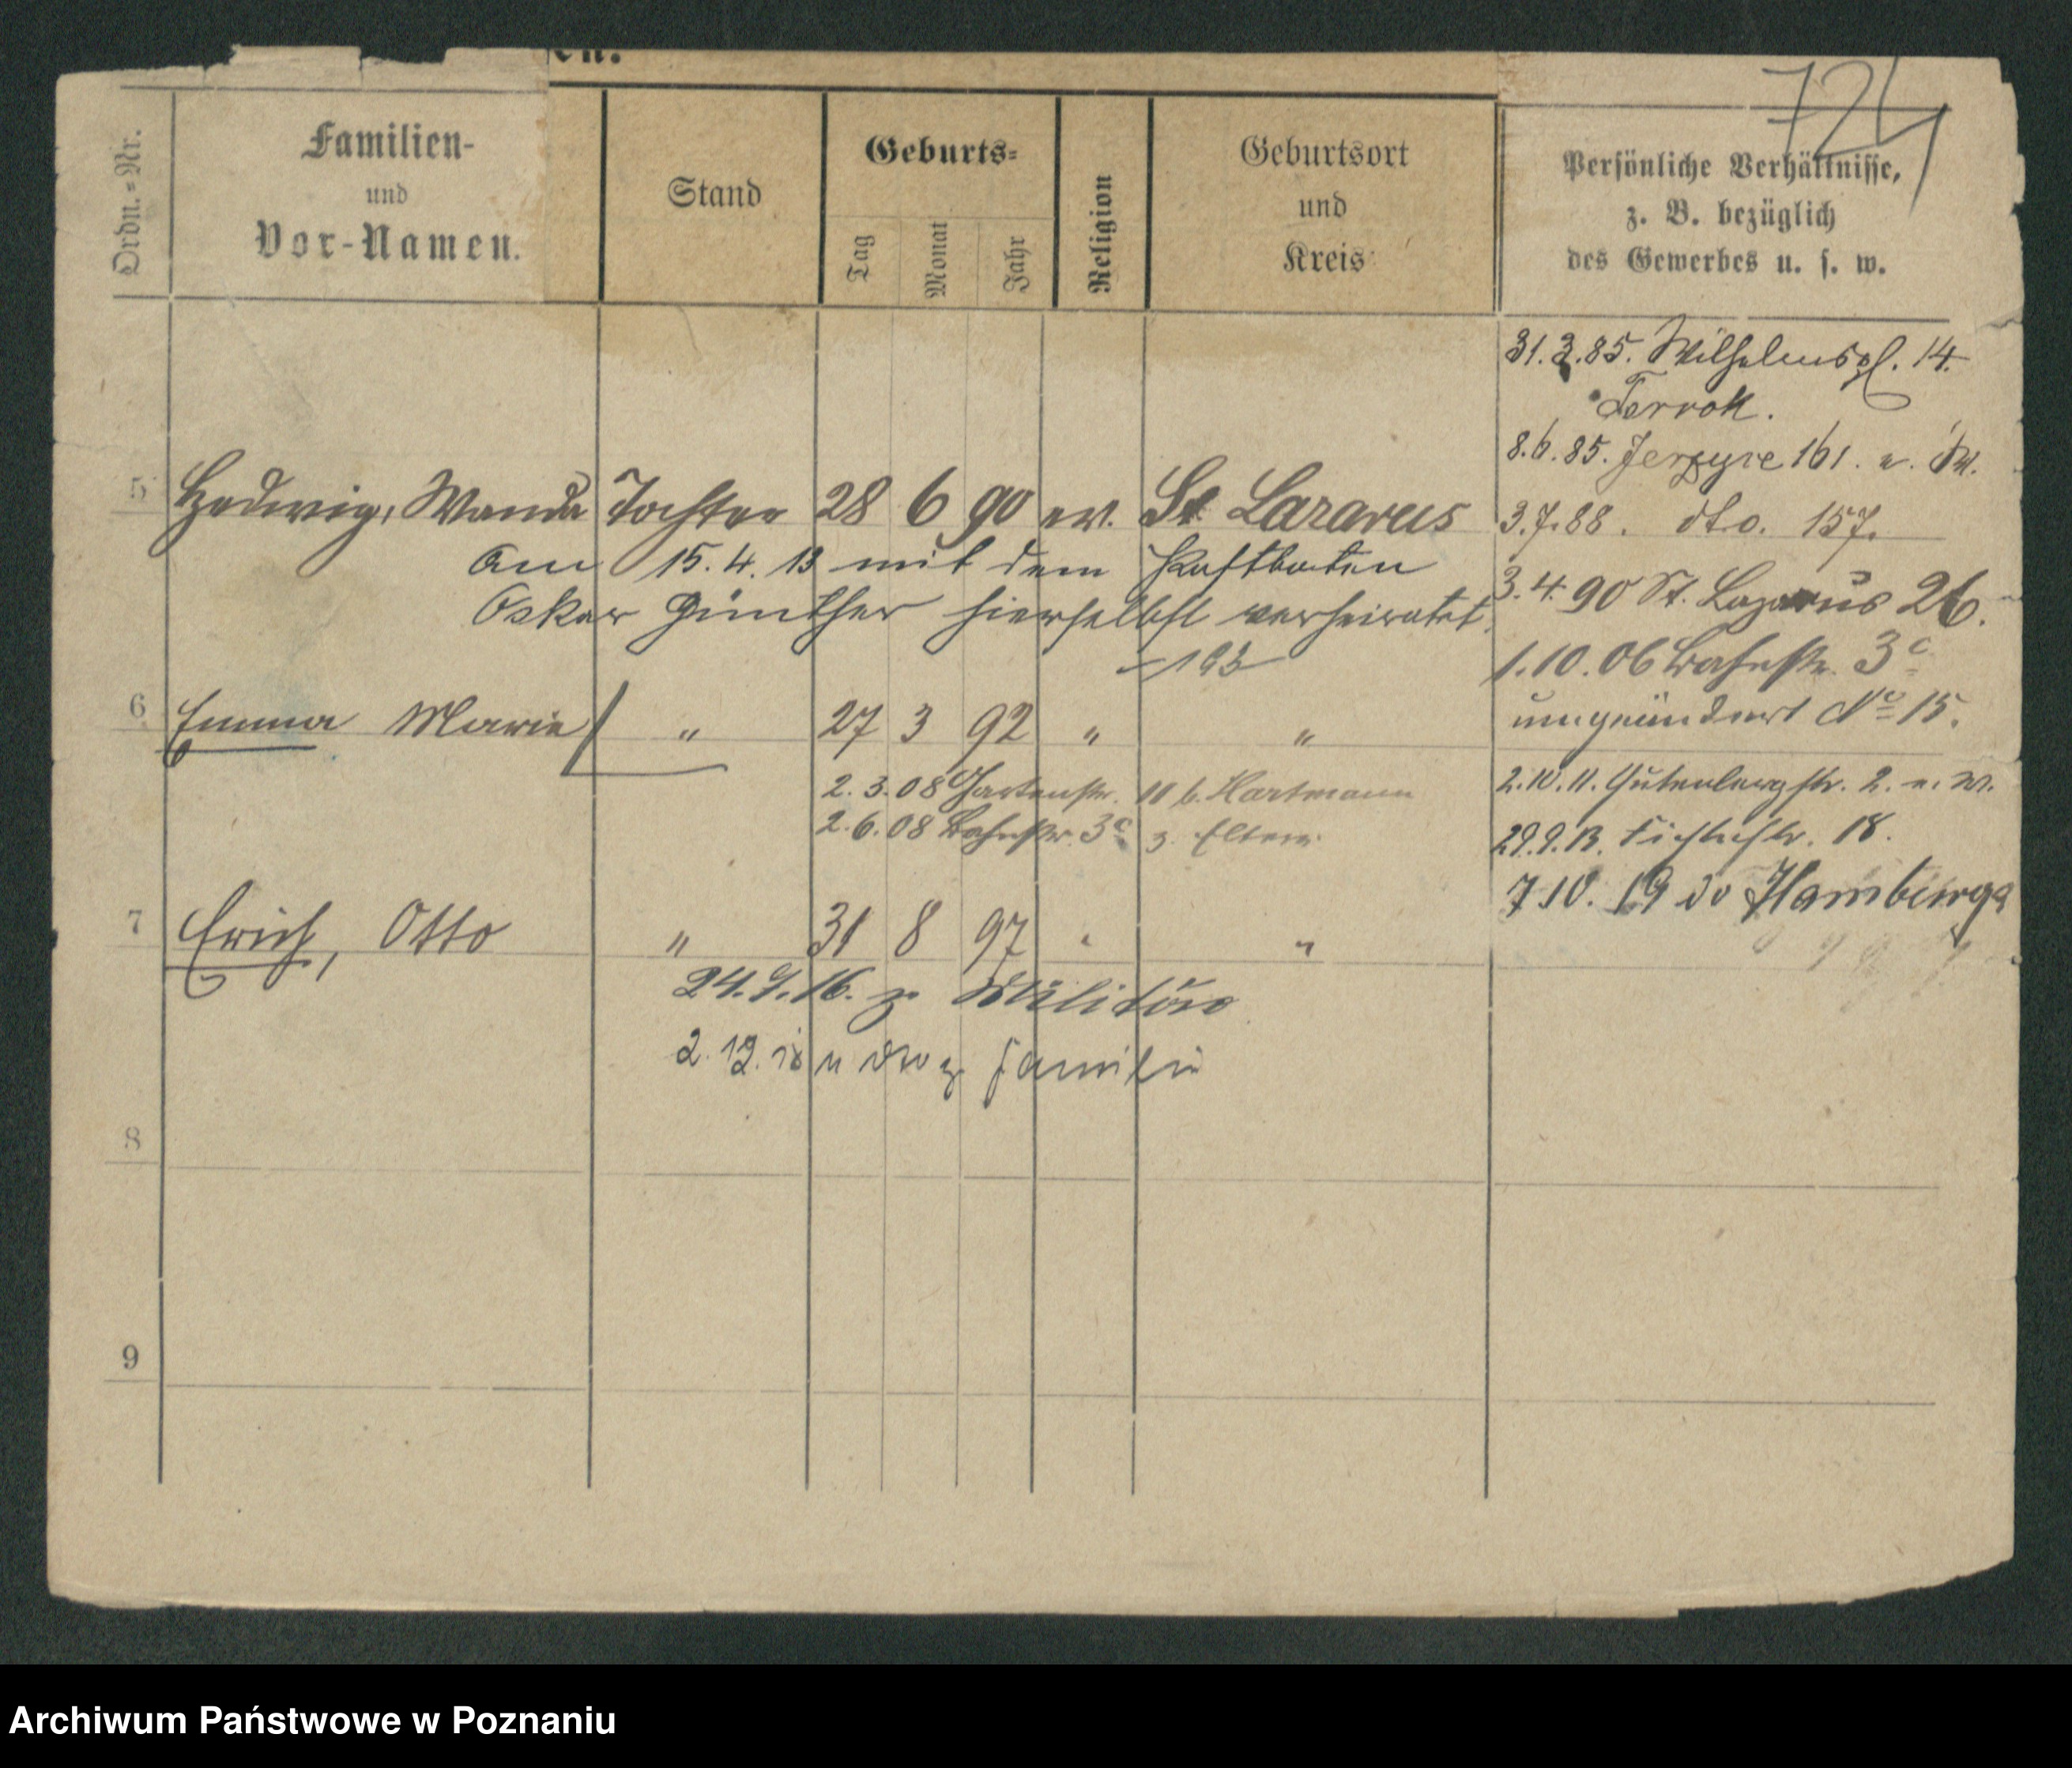 en.
724
Ordn.-Nr.
Familien-
und
Vor-Namen.
Stand
Geburts-
Tag
Monat
Jahr
Religion
Geburtsort
und
Kreis
Persönliche Verhältnisse,
z. B. bezüglich
des Gewerbes u. s. w.
31.3.85. Wilhelmspl. 14.
8.6.85. Jerzyce 161. u. W.
5 Hedwig, Wanda Tochter 28 6 90 ev. St Lazarus
3.7.88. dto. 157.
am 15.4.13 mit dem Postboten
Oskar Günther hierselbst verheiratet.
3.4.90 St. Lazarus 26.
1.10.06 Bahnstr. 3c
umgeändert No 15.
6 Emma Marie " 27 3 92 " "
2.3.08 Gartenstr. 11 b. Hartmann
2.6.08 Bahnstr. 3c z. Eltern
2.10.11. Gutenbergstr. 2. u. W.
29.9.13. Fichtestr. 18.
7 10. 19 Hamburg
7 Erich, Otto " 31 8 97 " "
24.9.16. z. Militär
2.12.18 z Familie
8
9
Archiwum Państwowe w Poznaniu